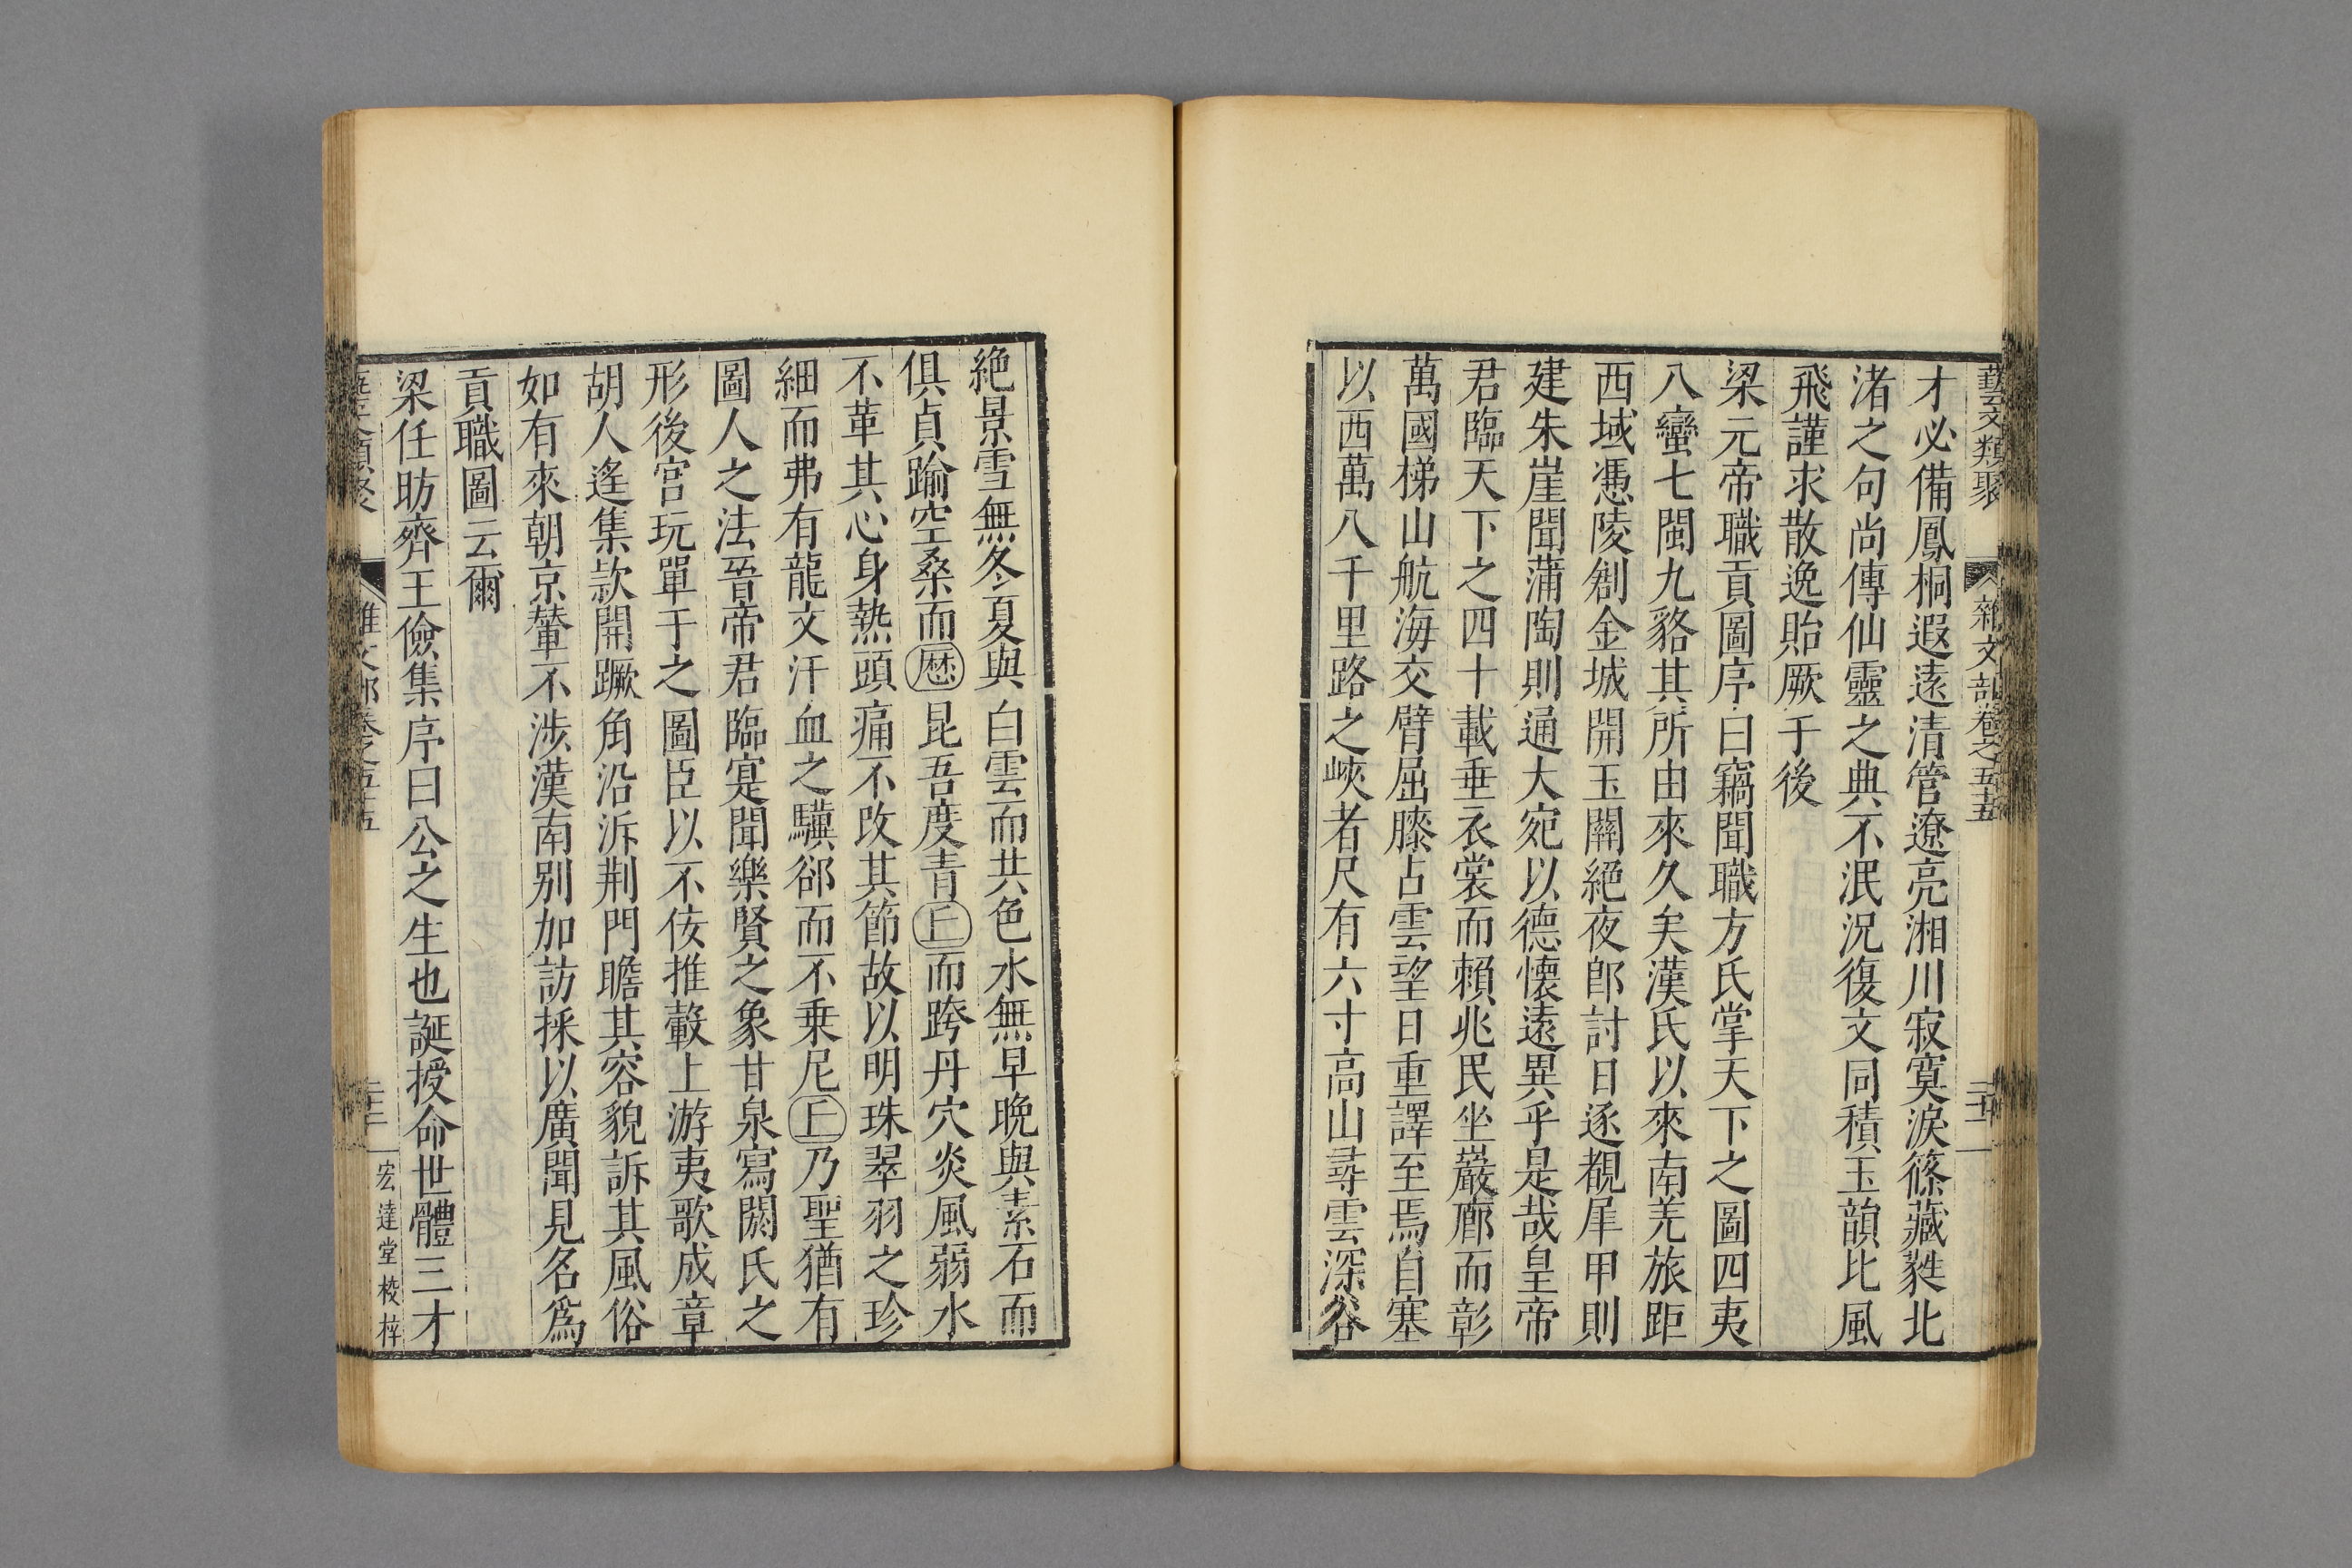 藝文類聚 雜文部卷之五十五
才必備鳳桐遐遠清管遼亮湘川寂寞淚篠藏蕤北
渚之句尚傳仙靈之典不泯況復文同積玉韻比風
飛謹求散逸貽厥于後
梁元帝職貢圖序曰竊聞職方氏掌天下之圖四夷
八蠻七閩九貉其所由來久矣漢氏以來南羌旅距
西域憑陵創金城開玉關絕夜郎討日逐覩犀甲則
建朱崖聞蒲陶則通大宛以德懷遠異乎是哉皇帝
君臨天下之四十載垂衣裳而賴兆民坐巖廊而彰
萬國梯山航海交臂屈膝占雲望日重譯至焉自塞
以西萬八千里路之峽者尺有六寸高山尋雲深谷
絶景雪無冬夏與白雲而共色水無早晚與素石而
俱貞踰空桑而厯昆吾度青𠀉而跨丹穴炎風弱水
不革其心身熱頭痛不改其節故以明珠翠羽之珍
細而弗有龍文汗血之驥郤而不乗尼𠀉乃聖猶有
圖人之法晉帝君臨寔聞樂賢之象甘泉寫閼氏之
形後宮玩單于之圖臣以不佞推轂上游夷歌成章
胡人遙集款開蹶角沿泝荆門瞻其容貌訴其風俗
如有來朝京輦不涉漢南别加訪採以廣聞見名爲
貢職圖云爾
梁任昉齊王儉集序曰公之生也誕授命世體三才
宏達堂棱梓